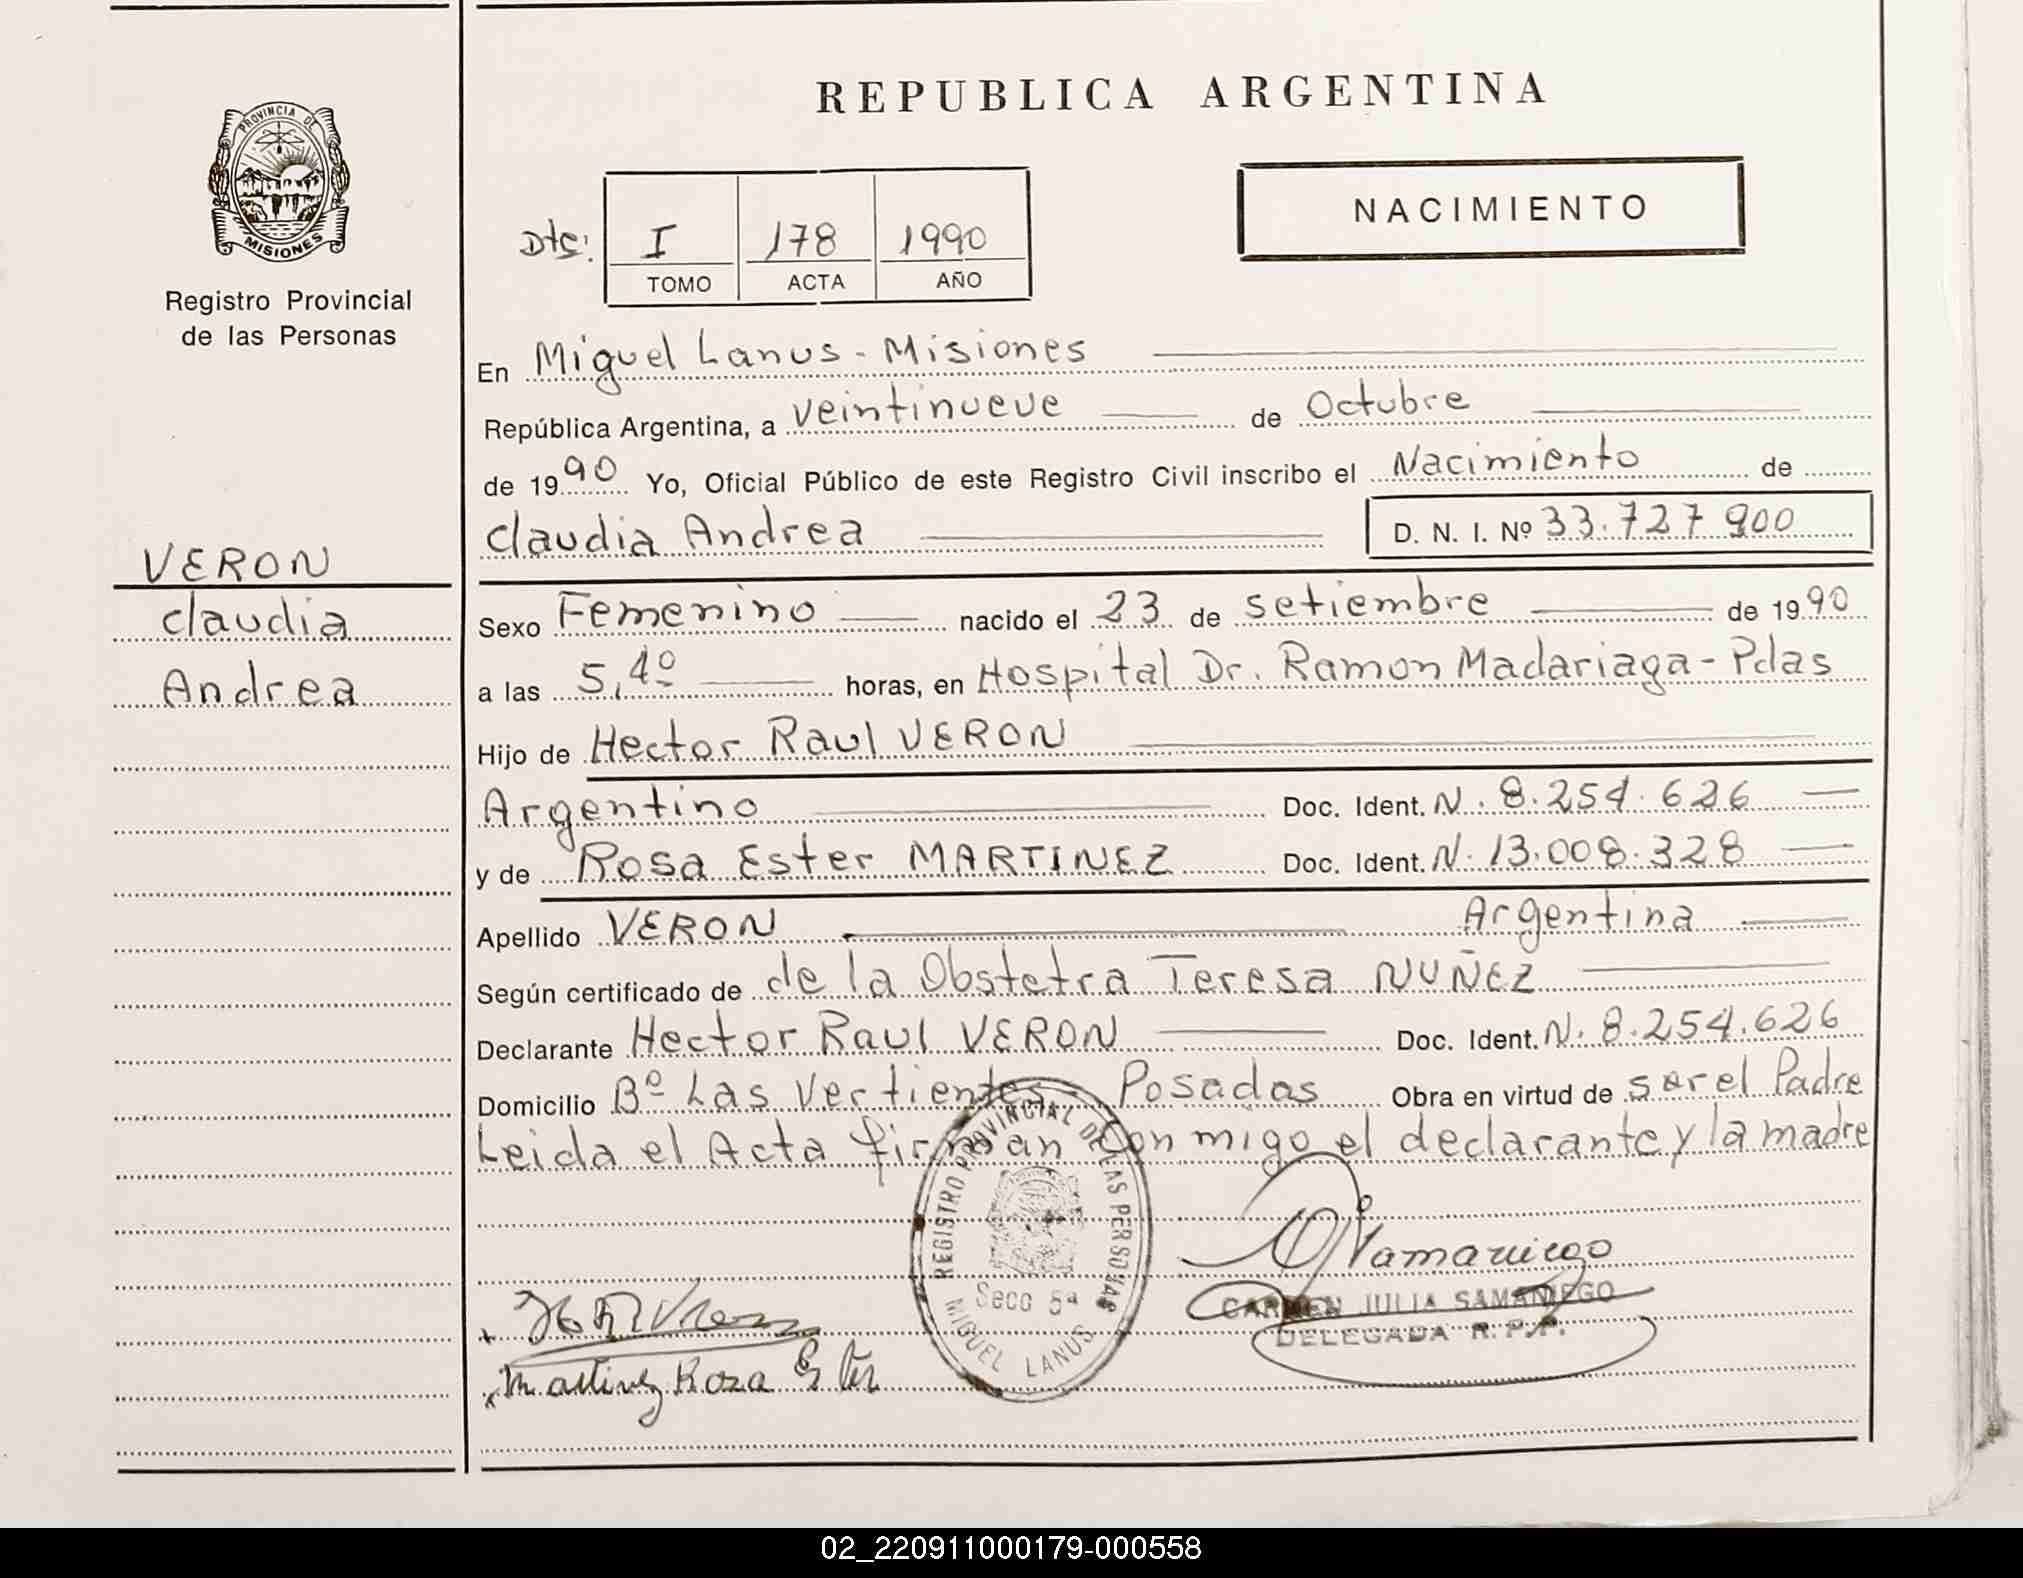 REPUBLICA ARGENTINA
PROVINCIA DE
MISIONES
Registro Provincial
de las Personas
NACIMIENTO
I 178 1990
TOMO ACTA AÑO
En Miguel Lanus - Misiones
República Argentina, a veintinueve de Octubre
de 1990 Yo, Oficial Público de este Registro Civil inscribo el Nacimiento de
Claudia Andrea D. N. I. Nº 33.727.900
VERON
Claudia
Andrea
Sexo Femenino nacido el 23 de setiembre de 1990
a las 5,40 horas, en Hospital Dr. Ramon Madariaga - Pdas
Hijo de Hector Raul VERON
Argentino Doc. Ident. N. 8.254.626
y de Rosa Ester MARTINEZ Doc. Ident. N. 13.008.328
Apellido VERON Argentina
Según certificado de de la Obstetra Teresa NUÑEZ
Declarante Hector Raul VERON Doc. Ident. N. 8.254.626
Domicilio Bº Las Vertientes - Posadas Obra en virtud de ser el Padre
Leida el Acta firman conmigo el declarante y la madre
REGISTRO PROVINCIAL DE LAS PERSONAS
Secc 5ª
MIGUEL LANUS
CARMEN JULIA SAMANIEGO
DELEGADA R.P.P.
Martinez Rosa Ester
02_220911000179-000558